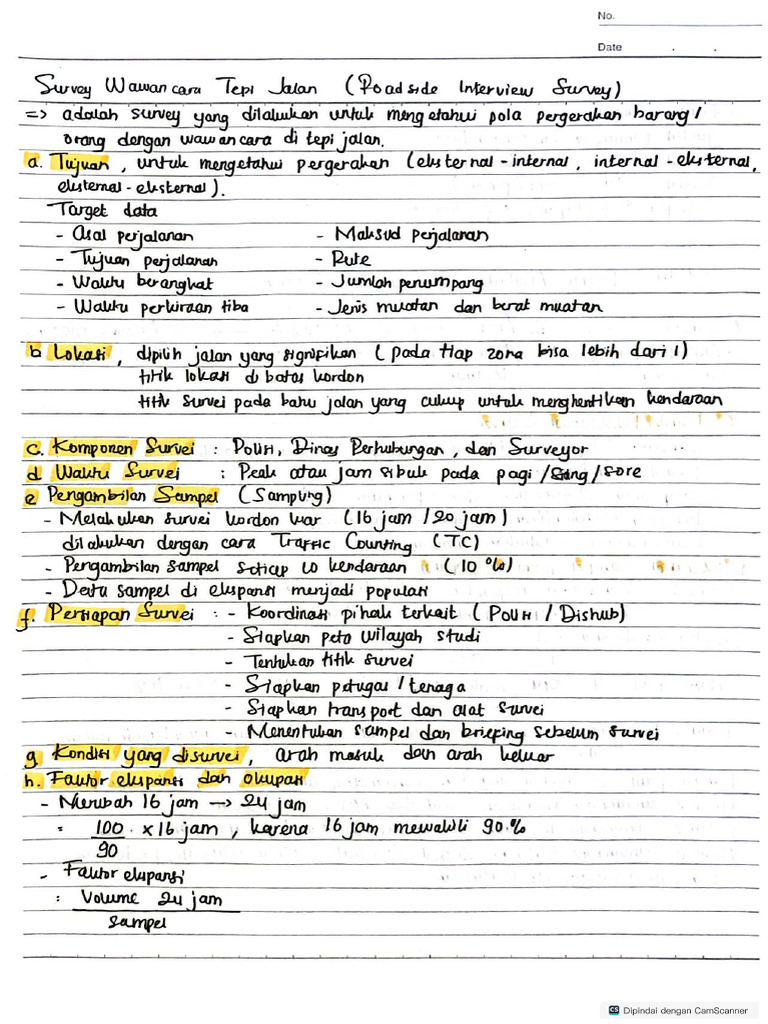 No.
Date . .
Survey Wawancara Tepi Jalan (Roadside Interview Survey)
=> adalah survey yang dilakukan untuk mengetahui pola pergerakan barang/
orang dengan wawancara di tepi jalan.
a. Tujuan, untuk mengetahui pergerakan (eksternal-internal, internal-eksternal,
eksternal-eksternal).
Target data
- Asal perjalanan - Maksud perjalanan
- Tujuan perjalanan - Rute
- Waktu berangkat - Jumlah penumpang
- Waktu perkiraan tiba - Jenis muatan dan berat muatan
b Lokasi, dipilih jalan yang signifikan (pada tiap zona bisa lebih dari 1)
titik lokasi di batas kordon
titik survei pada bahu jalan yang cukup untuk menghentikan kendaraan
c. Komponen Survei : Polisi, Dinas Perhubungan, dan Surveyor
d Waktu Survei : Peak atau jam sibuk pada pagi/siang/sore
e Pengambilan Sampel (Sampling)
- Melakukan survei kordon luar (16 jam/20 jam)
dilakukan dengan cara Traffic Counting (TC)
- Pengambilan sampel setiap 10 kendaraan (10%)
- Data sampel di ekspansi menjadi populasi
f. Persiapan Survei : - Koordinasi pihak terkait (Polisi/Dishub)
- Siapkan peta wilayah studi
- Tentukan titik survei
- Siapkan petugas/tenaga
- Siapkan transport dan alat survei
- Menentukan sampel dan briefing sebelum survei
g Kondisi yang disurvei, arah masuk dan arah keluar
h. Faktor ekspansi dan okupasi
- Merubah 16 jam → 24 jam
= 100 x 16 jam, karena 16 jam mewakili 90.%
90
- Faktor ekspansi
= Volume 24 jam
sampel
CS Dipindai dengan CamScanner